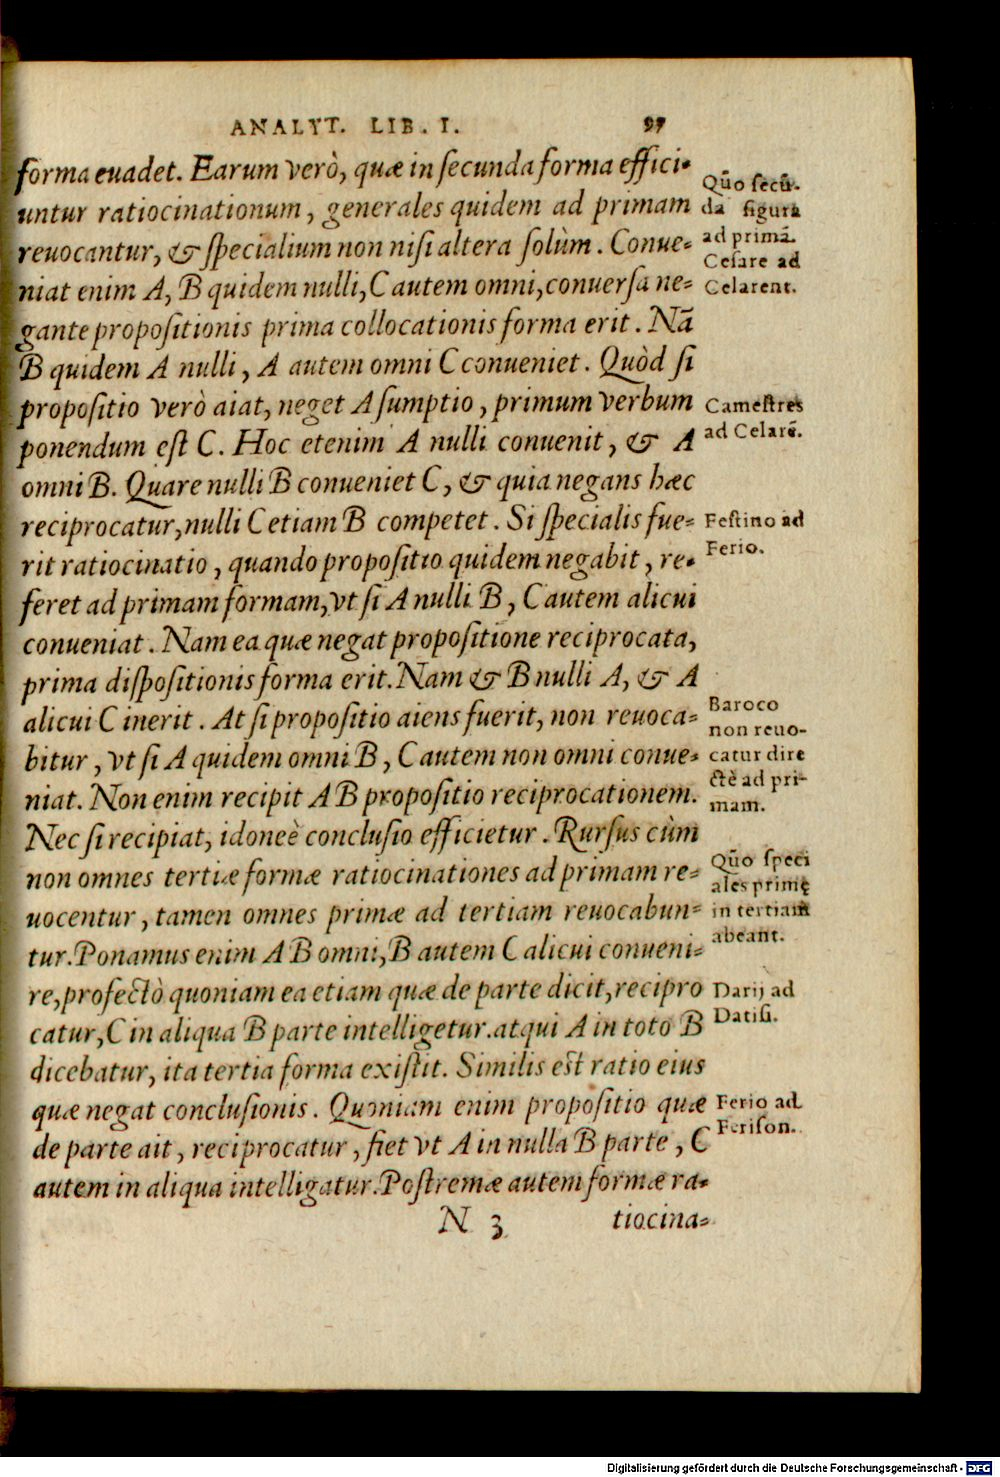 ANALYT. LIB. I. 97
forma euadet. Earum verò, quæ in secunda forma effici-
untur ratiocinationum, generales quidem ad primam
reuocantur, & specialium non nisi altera solùm. Conue-
niat enim A, B quidem nulli, C autem omni, conuersa ne-
gante propositionis prima collocationis forma erit. Nā
B quidem A nulli, A autem omni C conueniet. Quòd si
propositio verò aiat, neget Asumptio, primum verbum
ponendum est C. Hoc etenim A nulli conuenit, & A
omni B. Quare nulli B conueniet C, & quia negans hæc
reciprocatur, nulli C etiam B competet. Si specialis fue-
rit ratiocinatio, quando propositio quidem negabit, re-
feret ad primam formam, vt si A nulli B, C autem alicui
conueniat. Nam ea quæ negat propositione reciprocata,
prima dispositionis forma erit. Nam & B nulli A, & A
alicui C inerit. At si propositio aiens fuerit, non reuoca-
bitur, vt si A quidem omni B, C autem non omni conue-
niat. Non enim recipit A B propositio reciprocationem.
Nec si recipiat, idoneè conclusio efficietur. Rursus cùm
non omnes tertiæ formæ ratiocinationes ad primam re-
uocentur, tamen omnes primæ ad tertiam reuocabun-
tur. Ponamus enim A B omni, B autem C alicui conueni-
re, profectò quoniam ea etiam quæ de parte dicit, recipro
catur, C in aliqua B parte intelligetur. atqui A in toto B
dicebatur, ita tertia forma existit. Similis est ratio eius
quæ negat conclusionis. Quoniam enim propositio quæ
de parte ait, reciprocatur, fiet vt A in nulla B parte, C
autem in aliqua intelligatur. Postremæ autem formæ ra-
N 3 tiocina-
Quō secū-
da figura
ad primā.
Cesare ad
Celarent.
Camestres
ad Celarē.
Festino ad
Ferio.
Baroco
non reuo-
catur dire
ctè ad pri-
mam.
Quō speci
ales primę
in tertiam
abeant.
Darij ad
Datisi.
Ferio ad
Ferison.
Digitalisierung gefördert durch die Deutsche Forschungsgemeinschaft - DFG